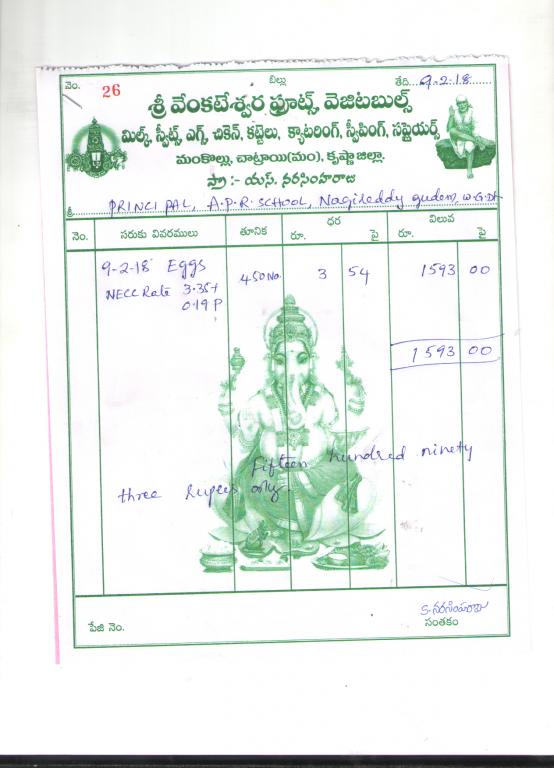 నెం. 26 బిల్లు తేది 9-2-18
శ్రీ వేంకటేశ్వర ఫ్రూట్స్, వెజిటబుల్స్
మిల్క్, స్వీట్స్, ఎగ్స్, చికెన్, కట్టెలు, క్యాటరింగ్, స్వీపింగ్, సప్లైయర్స్
మంకొల్లు, చాట్రాయి(మం), కృష్ణాజిల్లా.
ప్రొ :- యస్. నరసింహరాజు
శ్రీ PRINCIPAL, A.P.R. SCHOOL, Nagireddy gudem, W.G.Dt
నెం. సరుకు వివరములు తూనిక ధర రూ. పై విలువ రూ. పై
9-2-18 Eggs 450 No. 3 54 1593 00
NECC Rate 3.35+
0.19 P
1593 00
Fifteen hundred ninety
three Rupees only.
S. నరసింహరాజు
పేజి నెం. సంతకం